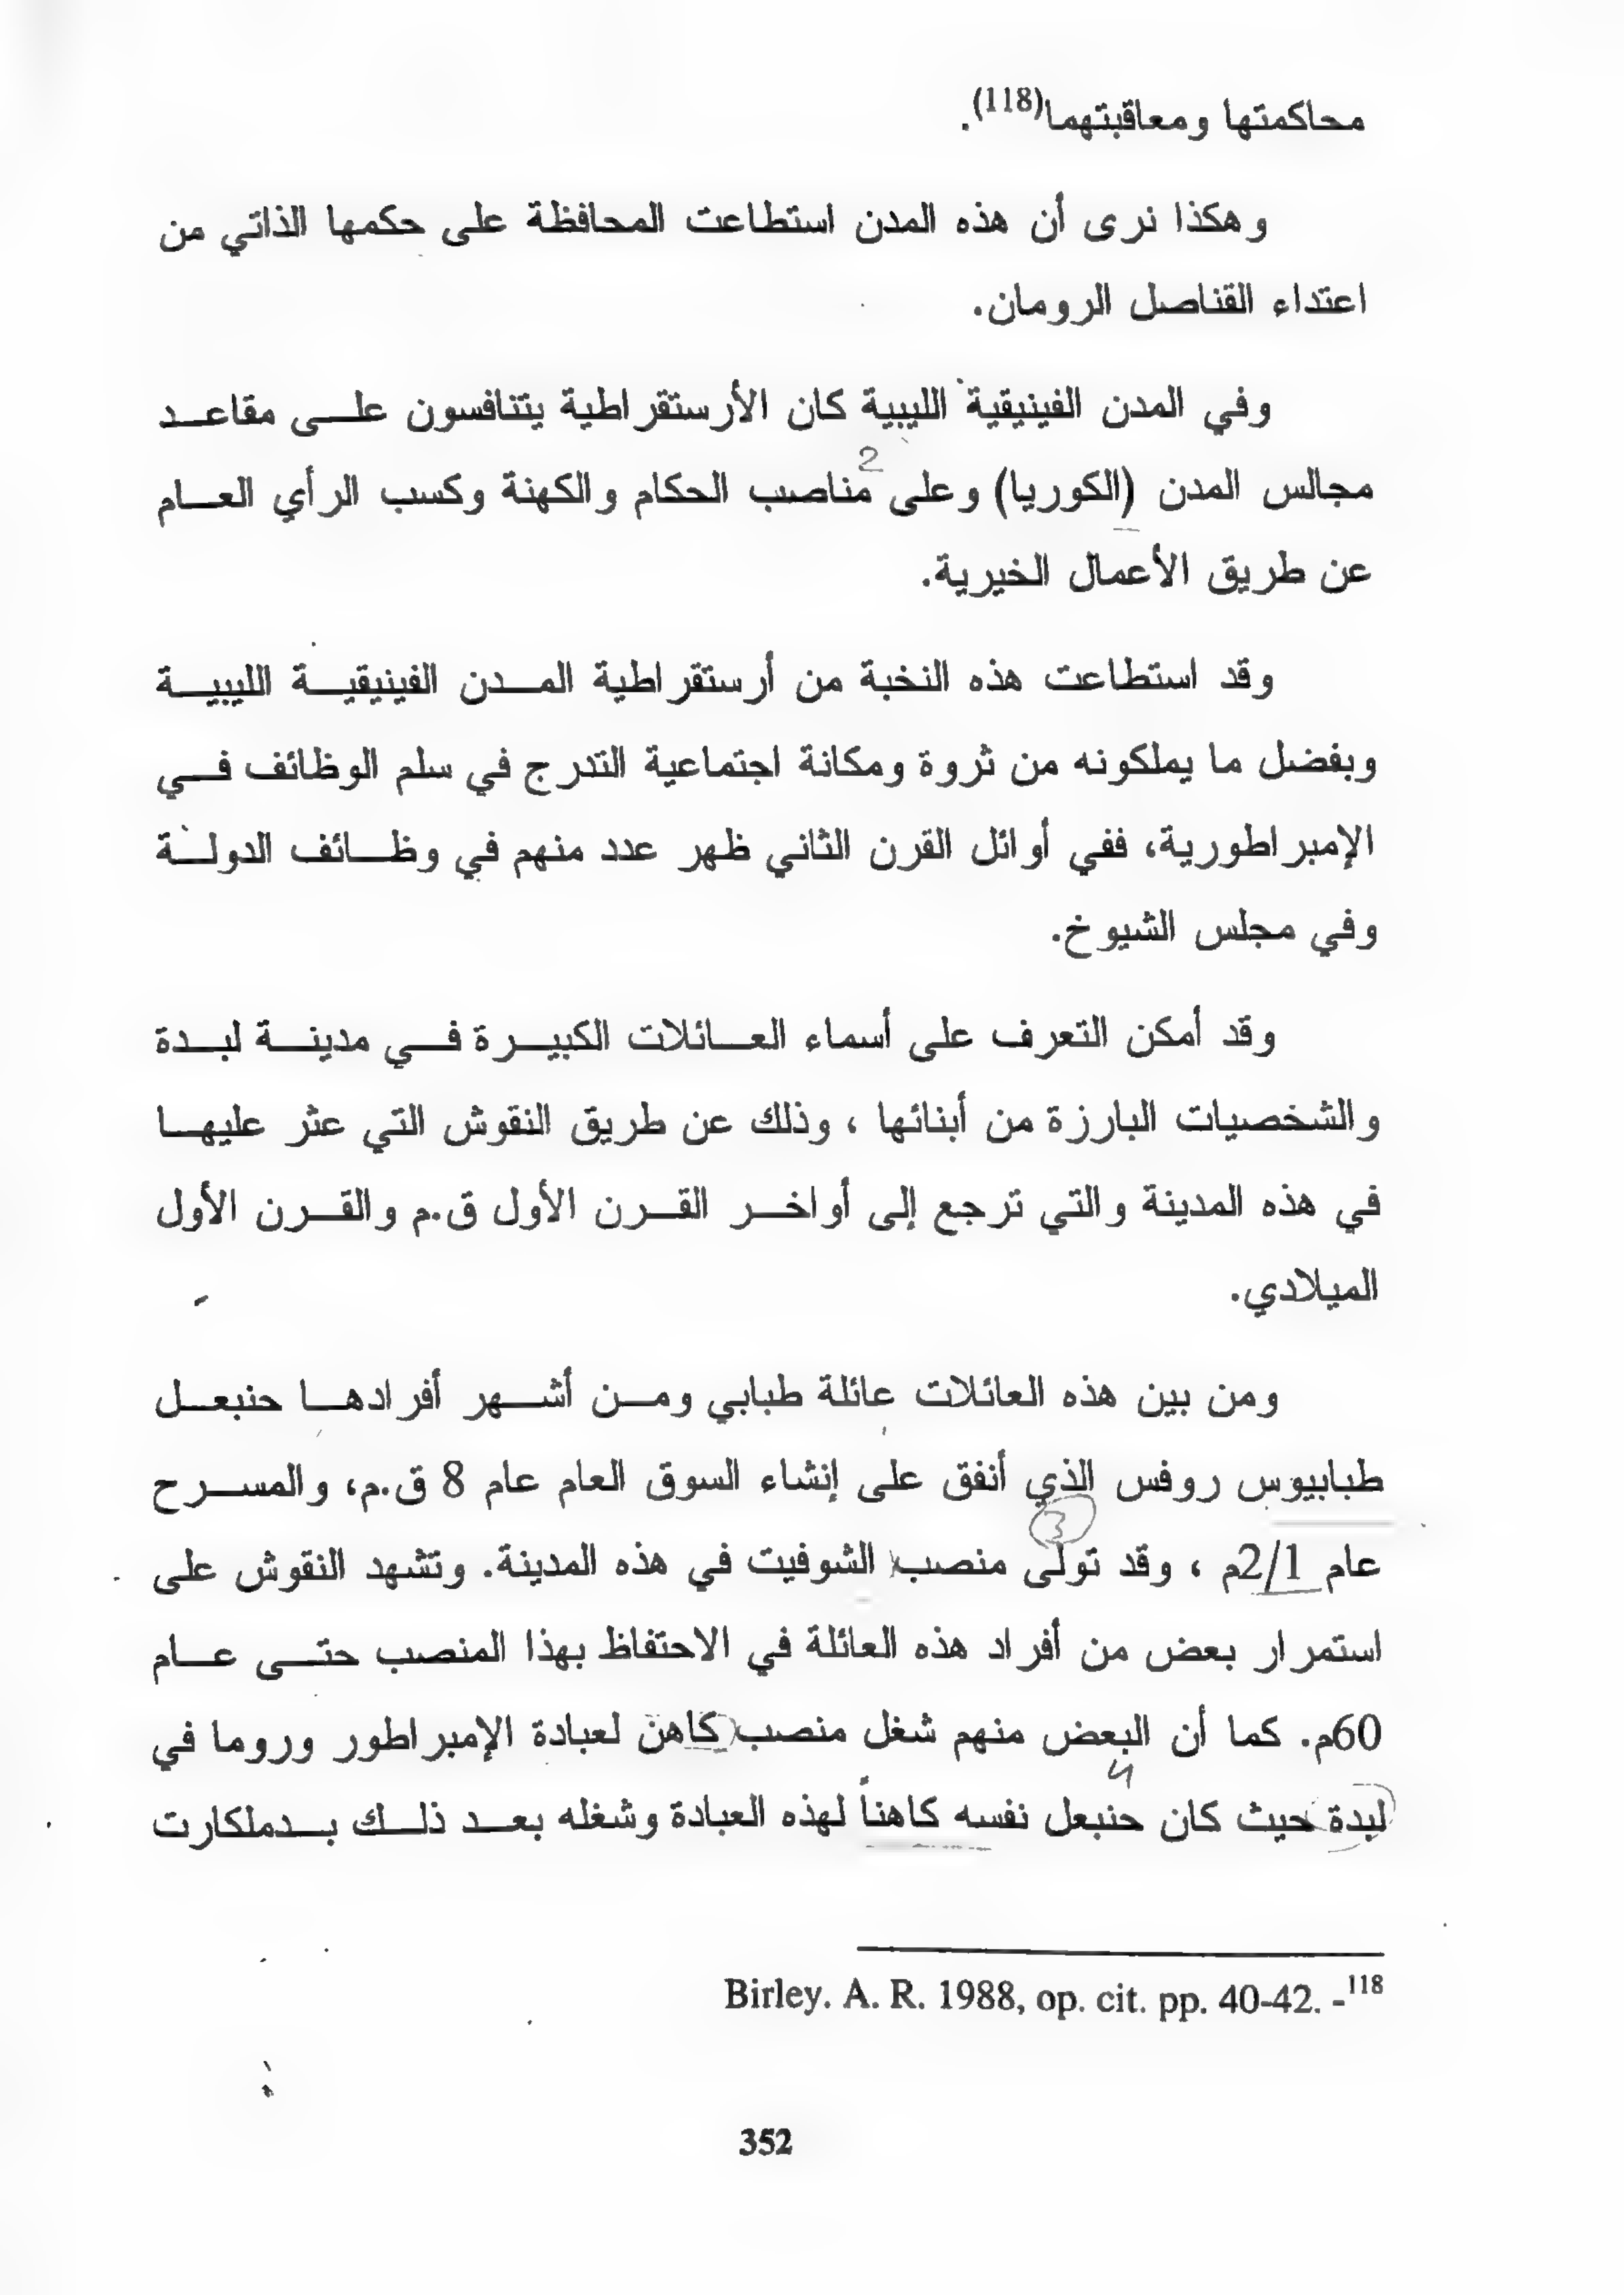 محاكمتها ومعاقبتهما(118).
وهكذا نرى أن هذه المدن استطاعت المحافظة على حكمها الذاتي من
اعتداء القناصل الرومان.
وفي المدن الفينيقية الليبية كان الأرستقراطية يتنافسون على مقاعد
2
مجالس المدن (الكوريا) وعلى مناصب الحكام والكهنة وكسب الرأي العام
عن طريق الأعمال الخيرية.
وقد استطاعت هذه النخبة من أرستقراطية المدن الفينيقية الليبية
وبفضل ما يملكونه من ثروة ومكانة اجتماعية التدرج في سلم الوظائف في
الإمبراطورية، ففي أوائل القرن الثاني ظهر عدد منهم في وظائف الدولة
وفي مجلس الشيوخ.
وقد أمكن التعرف على أسماء العائلات الكبيرة في مدينة لبدة
والشخصيات البارزة من أبنائها ، وذلك عن طريق النقوش التي عثر عليها
في هذه المدينة والتي ترجع إلى أواخر القرن الأول ق.م والقرن الأول
الميلادي.
ومن بين هذه العائلات عائلة طبابي ومن أشهر أفرادها حنبعل
طبابيوس روفس الذي أنفق على إنشاء السوق العام عام 8 ق.م، والمسرح
3
عام 2/1م ، وقد تولى منصب الشوفيت في هذه المدينة. وتشهد النقوش على
استمرار بعض من أفراد هذه العائلة في الاحتفاظ بهذا المنصب حتى عام
60م. كما أن البعض منهم شغل منصب كاهن لعبادة الإمبراطور وروما في
4
لبدة حيث كان حنبعل نفسه كاهناً لهذه العبادة وشغله بعد ذلك بدملكارت
Birley. A. R. 1988, op. cit. pp. 40-42. -118
352